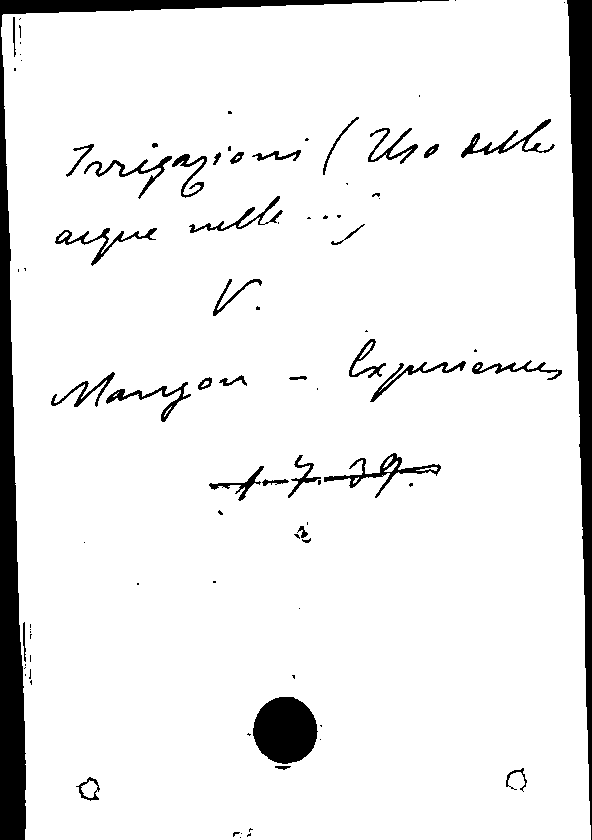 Irrigazioni (Uso delle
acque nelle ...)
V.
Mangon - Experiences
1.7.39.